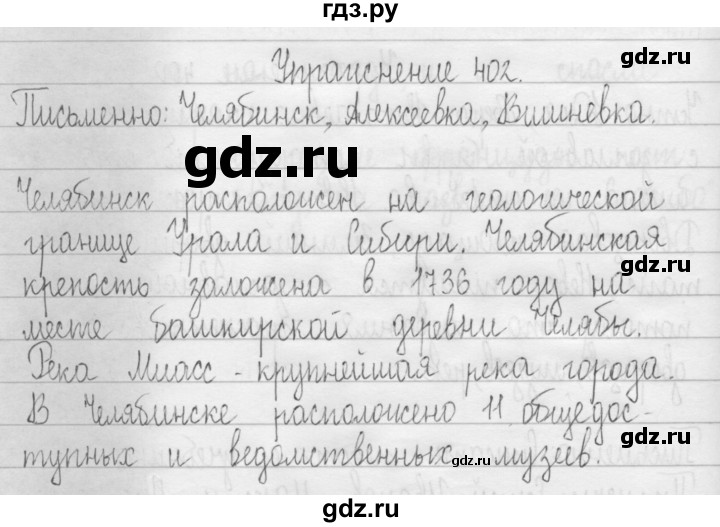 гдз.ру
gdz.ru
Упражнение 402.
Письменно: Челябинск, Алексеевка, Вишнёвка.
gdz.ru
Челябинск расположен на геологической
границе Урала и Сибири. Челябинская
крепость заложена в 1736 году на
месте башкирской деревни Челябы.
Река Миасс - крупнейшая река города.
В Челябинске расположено 11 общедос-
тупных и ведомственных музеев.
gdz.ru
gdz.ru
gdz.ru